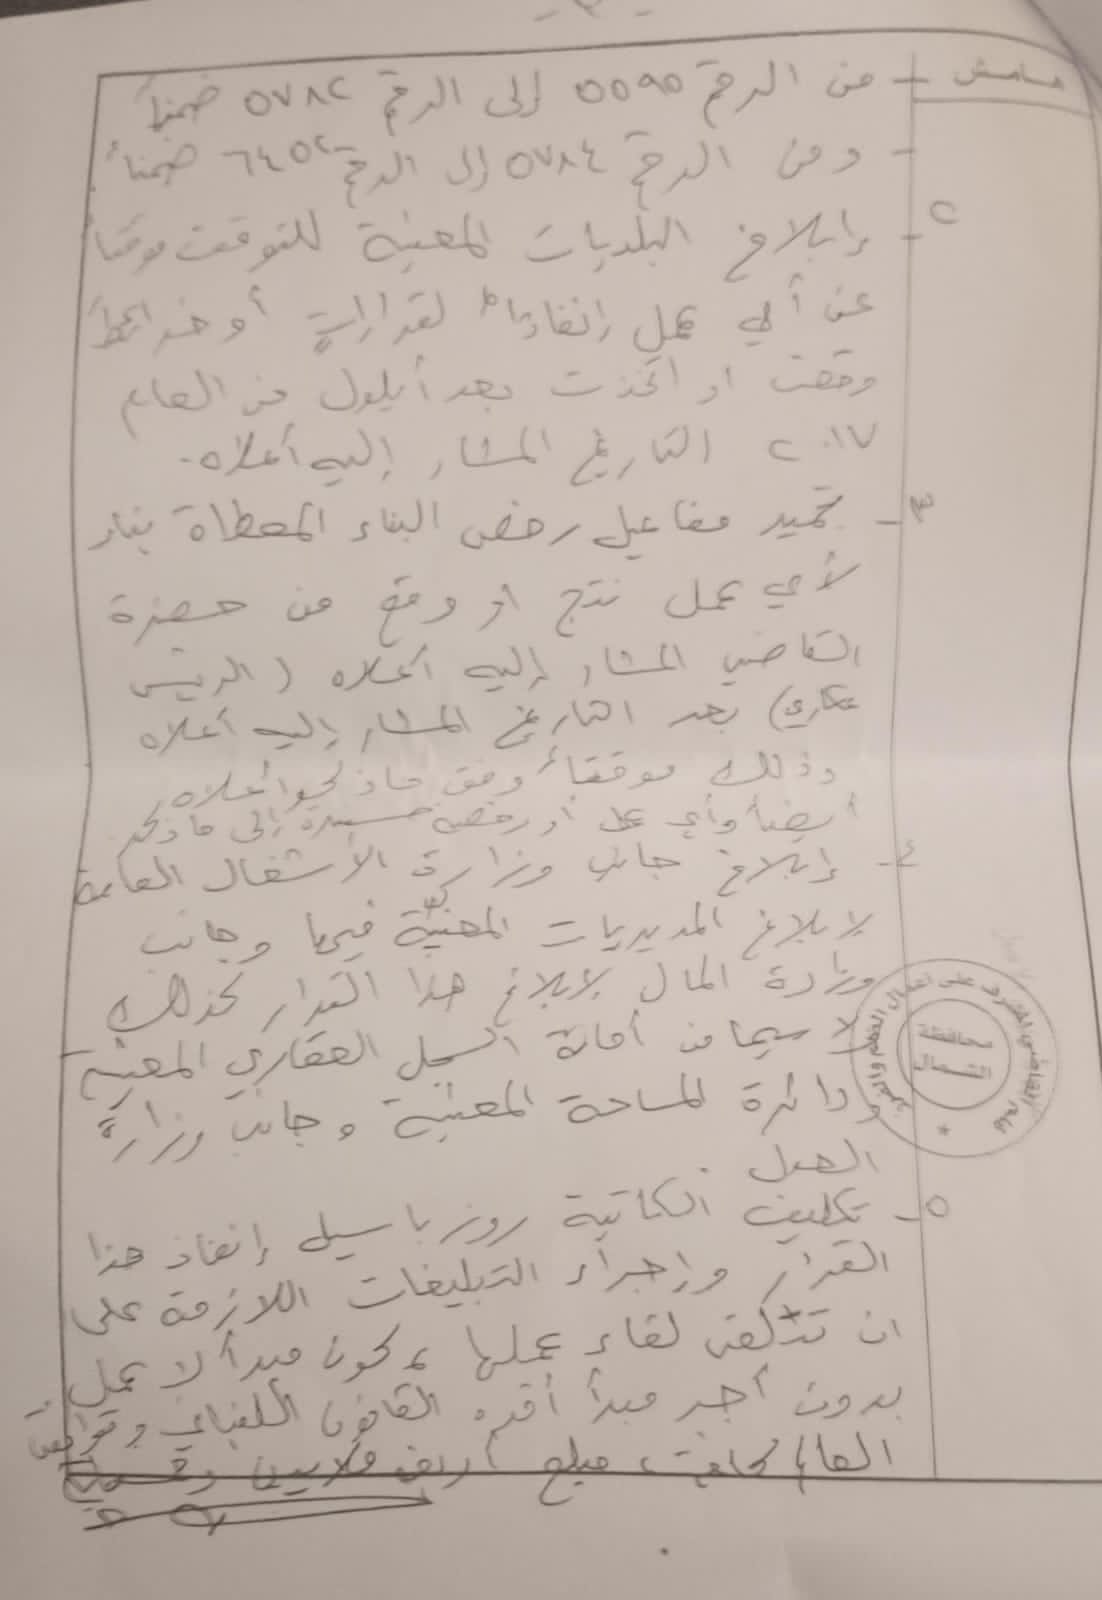 هامش
- من الرقم ٥٥٩٥ إلى الرقم ٥٧٨٢ ضمناً
- ومن الرقم ٥٧٨٤ إلى الرقم ٦٤٥٢ ضمناً
٢- إبلاغ البلديات المعنية للتوقف مؤقتاً
عن أي عمل إنفاذاً لقرارات أو خرائط
وقعت او اتخذت بعد أيلول من العام
٢٠١٧ التاريخ المشار إليه أعلاه.
٣- تجميد مفاعيل رخص البناء المعطاة
لأي عمل نتج او وقع من حضرة
القاضي المشار إليه أعلاه (الريس
عكاري) بعد التاريخ المشار إليه أعلاه
وذلك موقتاً وفق ما ذكر أعلاه
أيضاً وأي عمل أو رخصة إلى ما ذكر
٤- إبلاغ جانب وزارة الأشغال العامة
لإبلاغ المديريات المعنيّة فيها وجانب
وزارة المال لإبلاغ هذا القرار كذلك
لا سيما من أمانة السجل العقاري المعنية
ودائرة المساحة المعنية وجانب وزارة
العدل.
٥- تكليف الكاتبة روز باسيل إنفاذ هذا
القرار وإجراء التبليغات اللازمة على
ان تتلقى لقاء عملها كون مبدأ لا عمل
بدون أجر مبدأ أقره القانون اللبناني
مبلغ أربعة ملايين